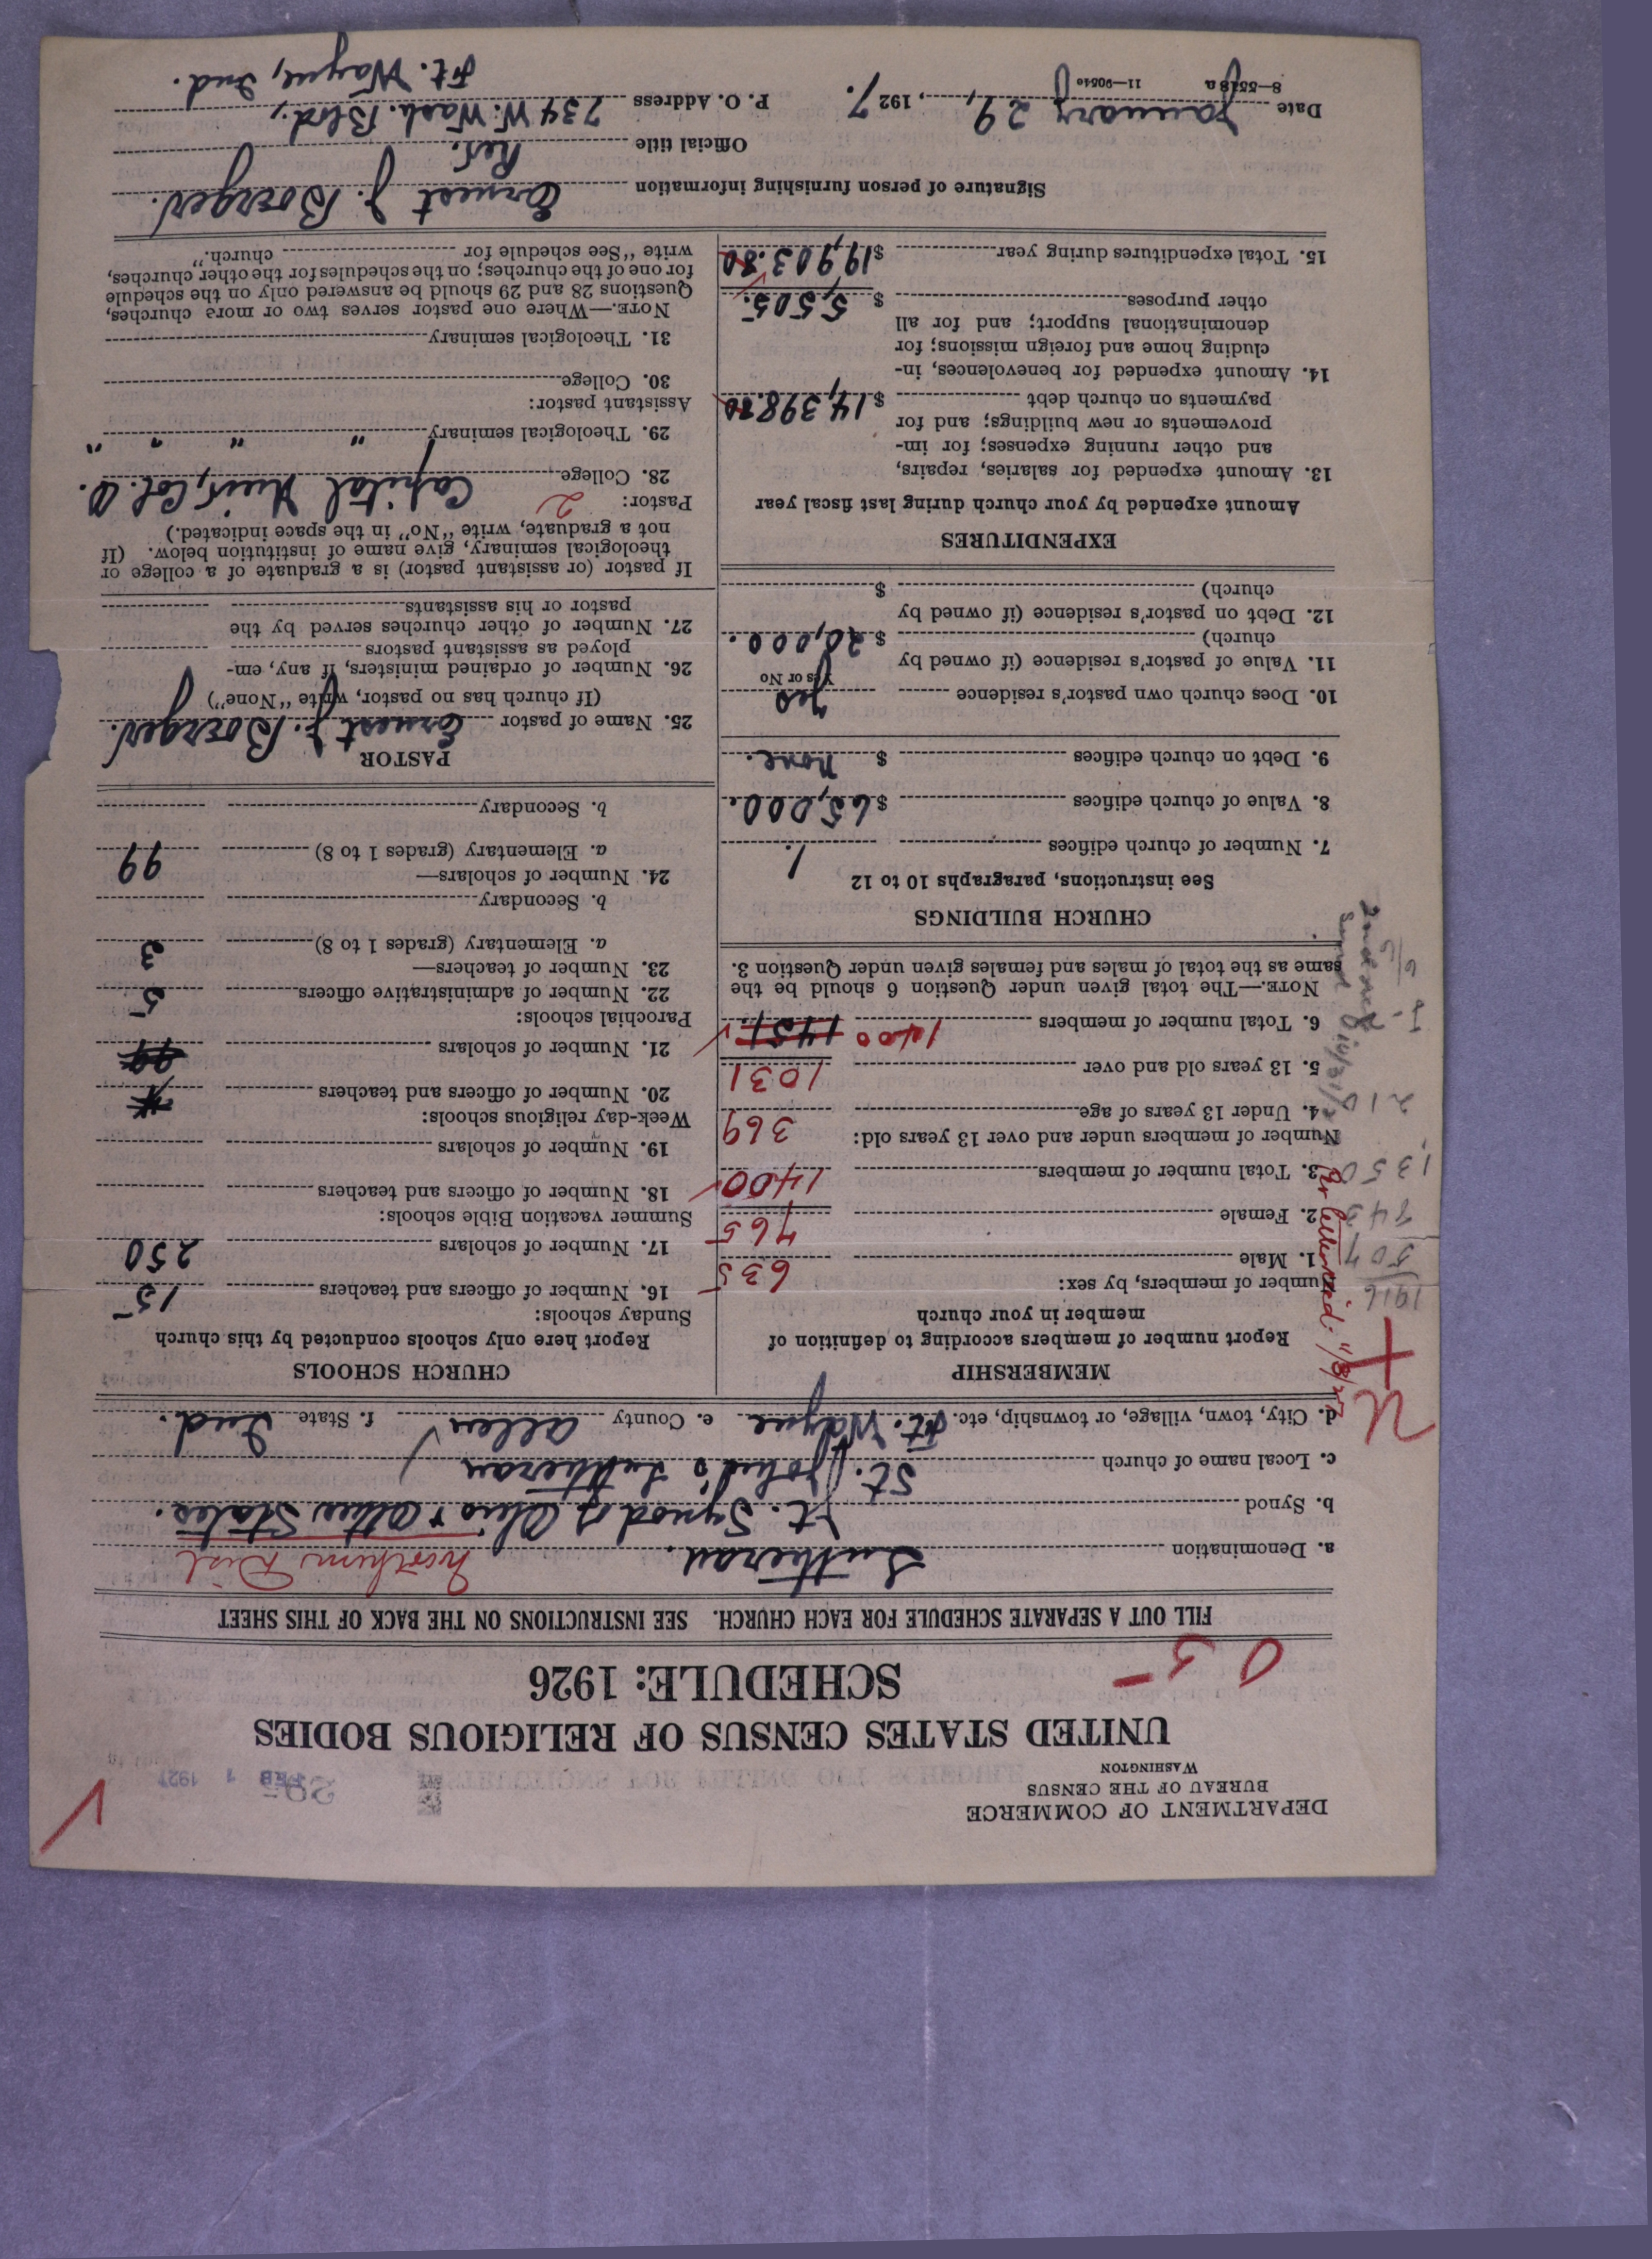 DEPARTMENT OF COMMERCE
BUREAU OF THE CENSUS
WASHINGTON
FEB 1 1927
UNITED STATES CENSUS OF RELIGIOUS BODIES
SCHEDULE: 1926
05
FILL OUT A SEPARATE SCHEDULE FOR EACH CHURCH. SEE INSTRUCTIONS ON THE BACK OF THIS SHEET
a. Denomination Lutheran. Northern Dist
b. Synod Jt. Synod of Ohio & Other States.
c. Local name of church St. John's Lutheran
d. City, town, village, or township, etc. Ft. Wayne e. County Allen f. State Ind.
MEMBERSHIP
Report number of members according to definition of
member in your church
Number of members, by sex:
1. Male 635
2. Female 765
3. Total number of members 1400
Number of members under and over 13 years old:
4. Under 13 years of age 369
5. 13 years old and over 1031
6. Total number of members 1400 1451
NOTE.—The total given under Question 6 should be the
same as the total of males and females given under Question 3.
1916
507
843
1,350
210
CHURCH BUILDINGS
See instructions, paragraphs 10 to 12
7. Number of church edifices 1.
8. Value of church edifices $65,000.
9. Debt on church edifices $ none.
10. Does church own pastor's residence yes
Yes or No
11. Value of pastor's residence (if owned by
church) $20,000.
12. Debt on pastor's residence (if owned by
church) $
EXPENDITURES
Amount expended by your church during last fiscal year
13. Amount expended for salaries, repairs,
and other running expenses; for im-
provements or new buildings; and for
payments on church debt $14,398.80
14. Amount expended for benevolences, in-
cluding home and foreign missions; for
denominational support; and for all
other purposes $5,505.
15. Total expenditures during year $19,903.80
CHURCH SCHOOLS
Report here only schools conducted by this church
Sunday schools:
16. Number of officers and teachers 15
17. Number of scholars 250
Summer vacation Bible schools:
18. Number of officers and teachers
19. Number of scholars
Week-day religious schools:
20. Number of officers and teachers
21. Number of scholars 99
Parochial schools:
22. Number of administrative officers 5
23. Number of teachers—
a. Elementary (grades 1 to 8) 3
b. Secondary
24. Number of scholars—
a. Elementary (grades 1 to 8) 99
b. Secondary
PASTOR
25. Name of pastor Ernest J. Boerger.
(If church has no pastor, write "None")
26. Number of ordained ministers, if any, em-
ployed as assistant pastors
27. Number of other churches served by the
pastor or his assistants
If pastor (or assistant pastor) is a graduate of a college or
theological seminary, give name of institution below. (If
not a graduate, write "No" in the space indicated.)
Pastor: 2
28. College Capital Univ., Col. O.
29. Theological seminary " " " "
Assistant pastor:
30. College
31. Theological seminary
NOTE.—Where one pastor serves two or more churches,
Questions 28 and 29 should be answered only on the schedule
for one of the churches; on the schedules for the other churches,
write "See schedule for church."
Signature of person furnishing information Ernest J. Boerger.
Official title Rev.
Date January 29, 1927. P. O. Address 734 W. Wash. Blvd.,
Ft. Wayne, Ind.
8—5518a 11—90540